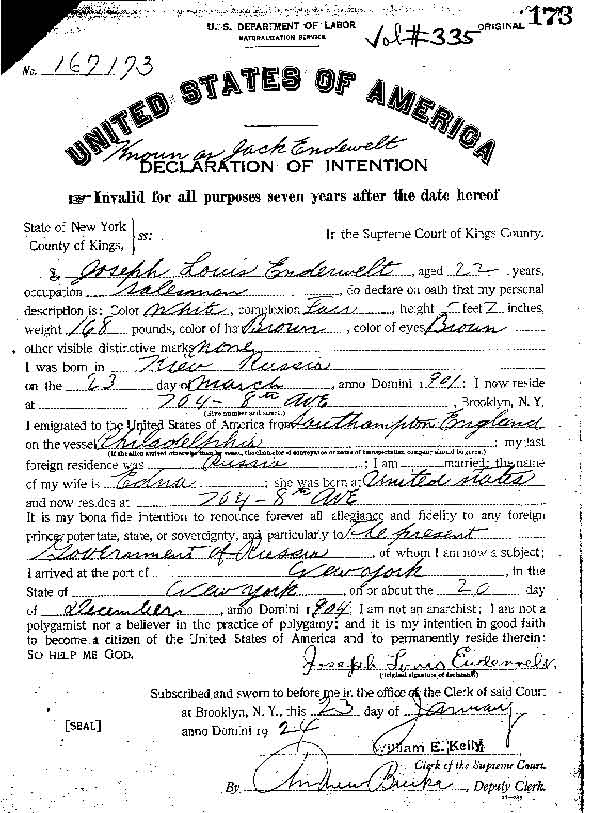 U. S. DEPARTMENT OF LABOR
NATURALIZATION SERVICE
Vol # 335
ORIGINAL 173
No. 167173
UNITED STATES OF AMERICA
Known as Jack Endewelt
DECLARATION OF INTENTION
☞ Invalid for all purposes seven years after the date hereof
State of New York
County of Kings,
ss:
In the Supreme Court of Kings County.
I, Joseph Louis Enderwelt, aged 22 years,
occupation Salesman, do declare on oath that my personal
description is: Color White, complexion Fair, height 5 feet 7 inches,
weight 168 pounds, color of hair Brown, color of eyes Brown
other visible distinctive marks none
I was born in Kiew Russia
on the 23 day of March, anno Domini 1901: I now reside
at 764 - 8th Ave, Brooklyn, N. Y.
(Give number and street.)
I emigrated to the United States of America from Southampton England
on the vessel Philadelphia; my last
(If the alien arrived otherwise than by vessel, the character of conveyance or name of transportation company should be given.)
foreign residence was Russia; I am married; the name
of my wife is Edna; she was born at United States
and now resides at 764 - 8th Ave
It is my bona fide intention to renounce forever all allegiance and fidelity to any foreign
prince, potentate, state, or sovereignty, and particularly to The present
Government of Russia, of whom I am now a subject;
I arrived at the port of New York, in the
State of New York, on or about the 20 day
of December, anno Domini 1904: I am not an anarchist; I am not a
polygamist nor a believer in the practice of polygamy; and it is my intention in good faith
to become a citizen of the United States of America and to permanently reside therein:
SO HELP ME GOD.
Joseph Louis Endewelt
(Original signature of declarant.)
Subscribed and sworn to before me in the office of the Clerk of said Court
at Brooklyn, N. Y., this 23 day of January
[SEAL]
anno Domini 1924
William E. Kelly
Clerk of the Supreme Court.
By Andrew Burke, Deputy Clerk.